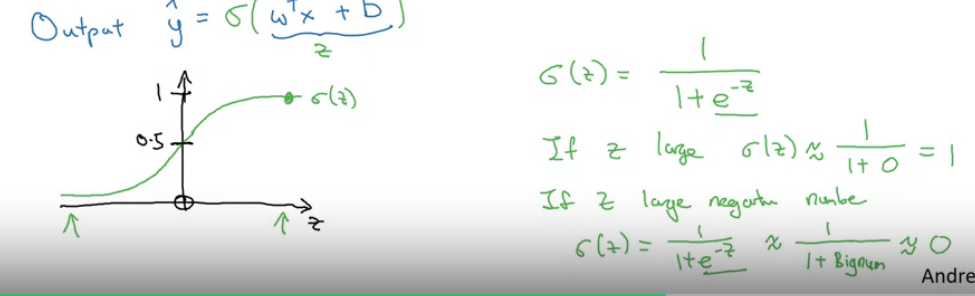 Output ŷ = σ(wᵀx + b)
z
1
σ(z)
0.5
z
σ(z) = 1 / (1 + e⁻ᶻ)
If z large σ(z) ≈ 1 / (1 + 0) = 1
If z large negative number
σ(z) = 1 / (1 + e⁻ᶻ) ≈ 1 / (1 + Bignum) ≈ 0
Andre